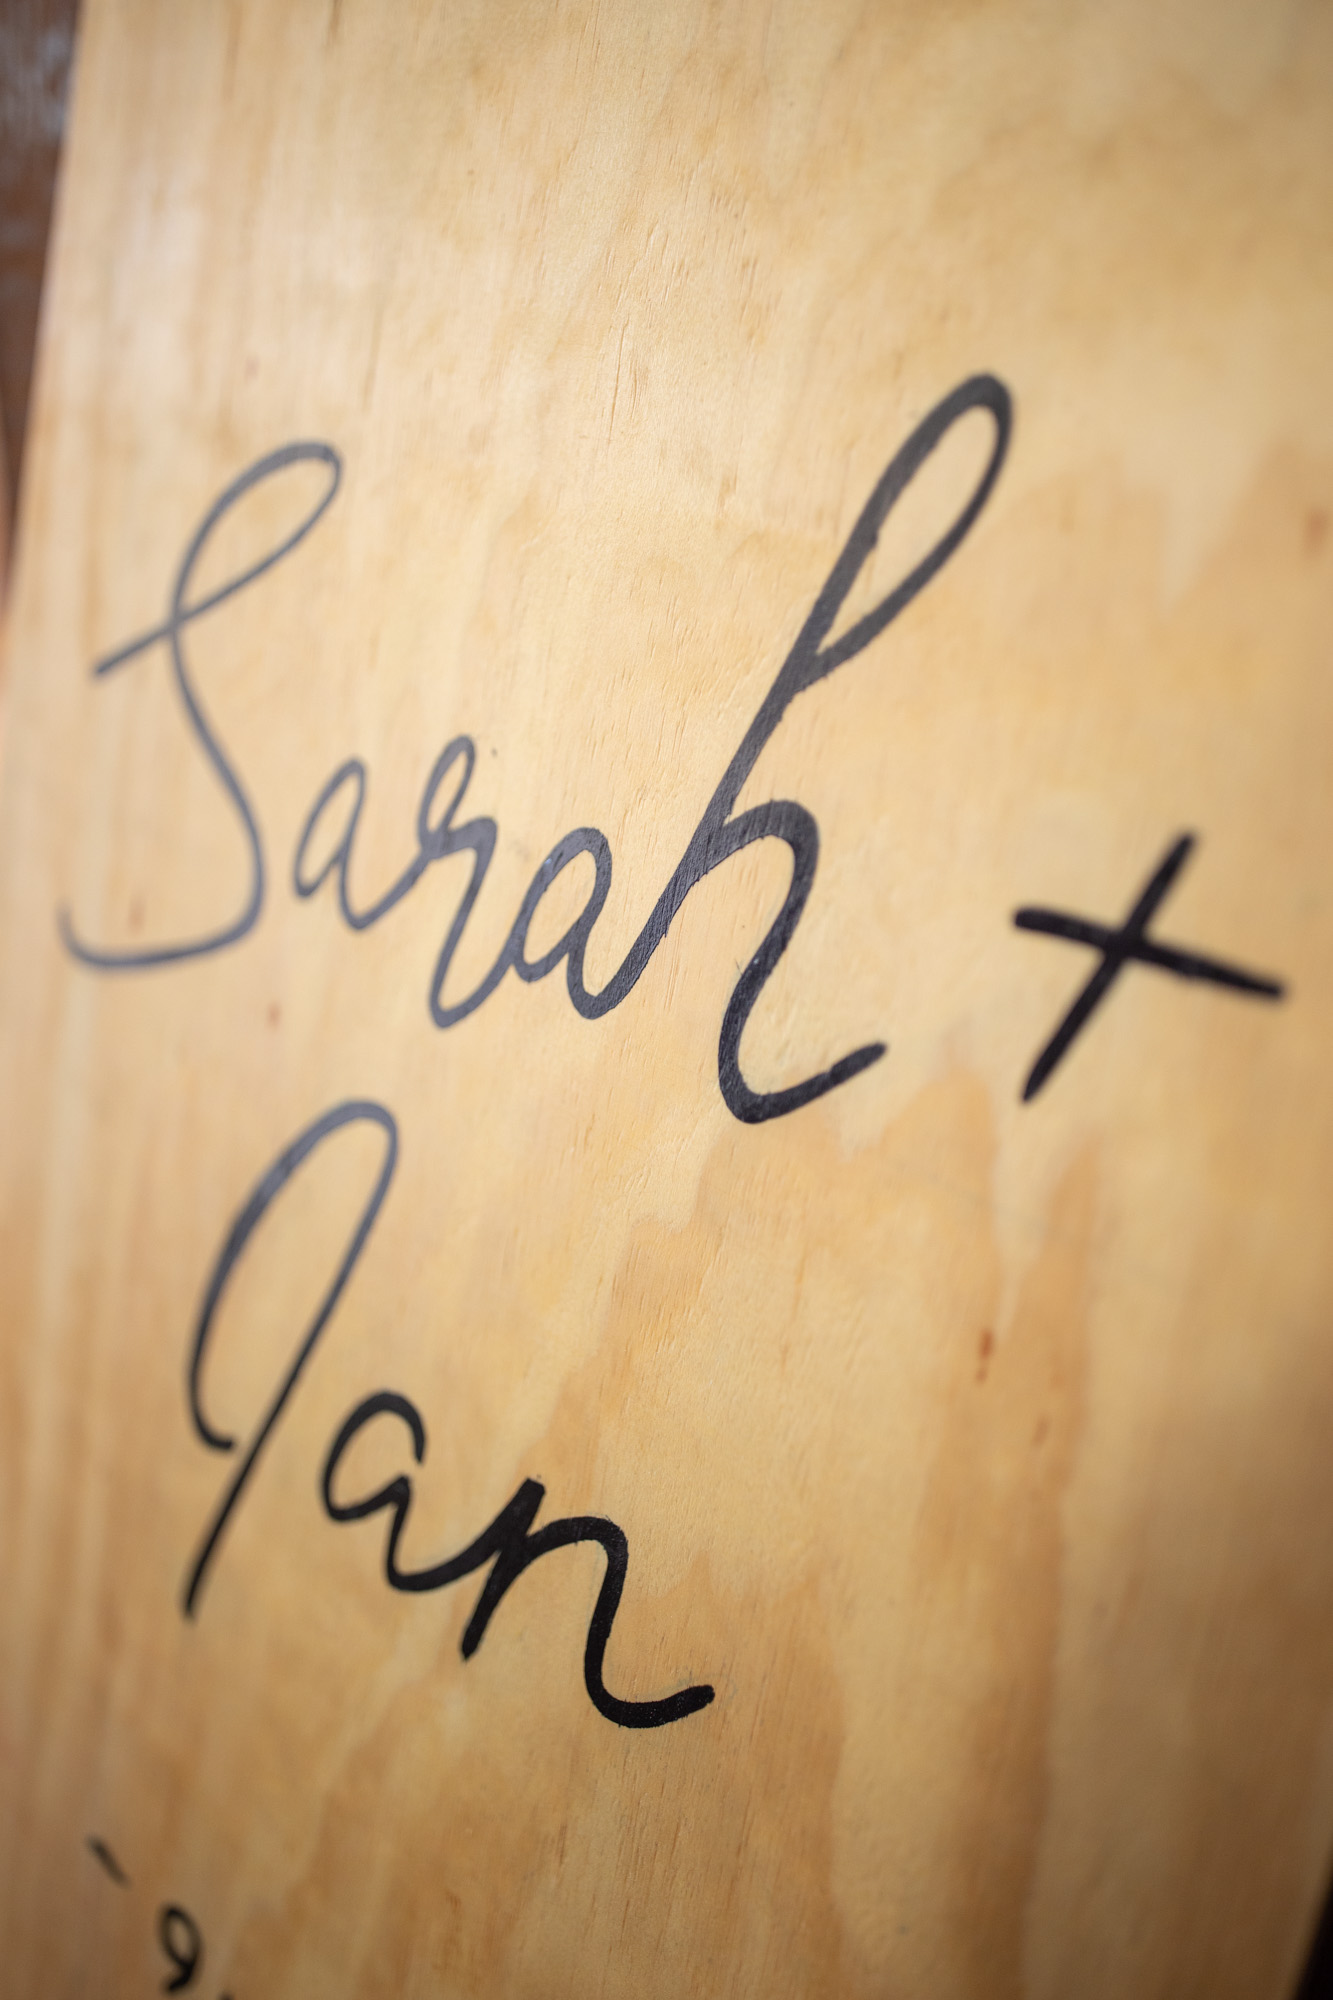 Sarah +
Jan